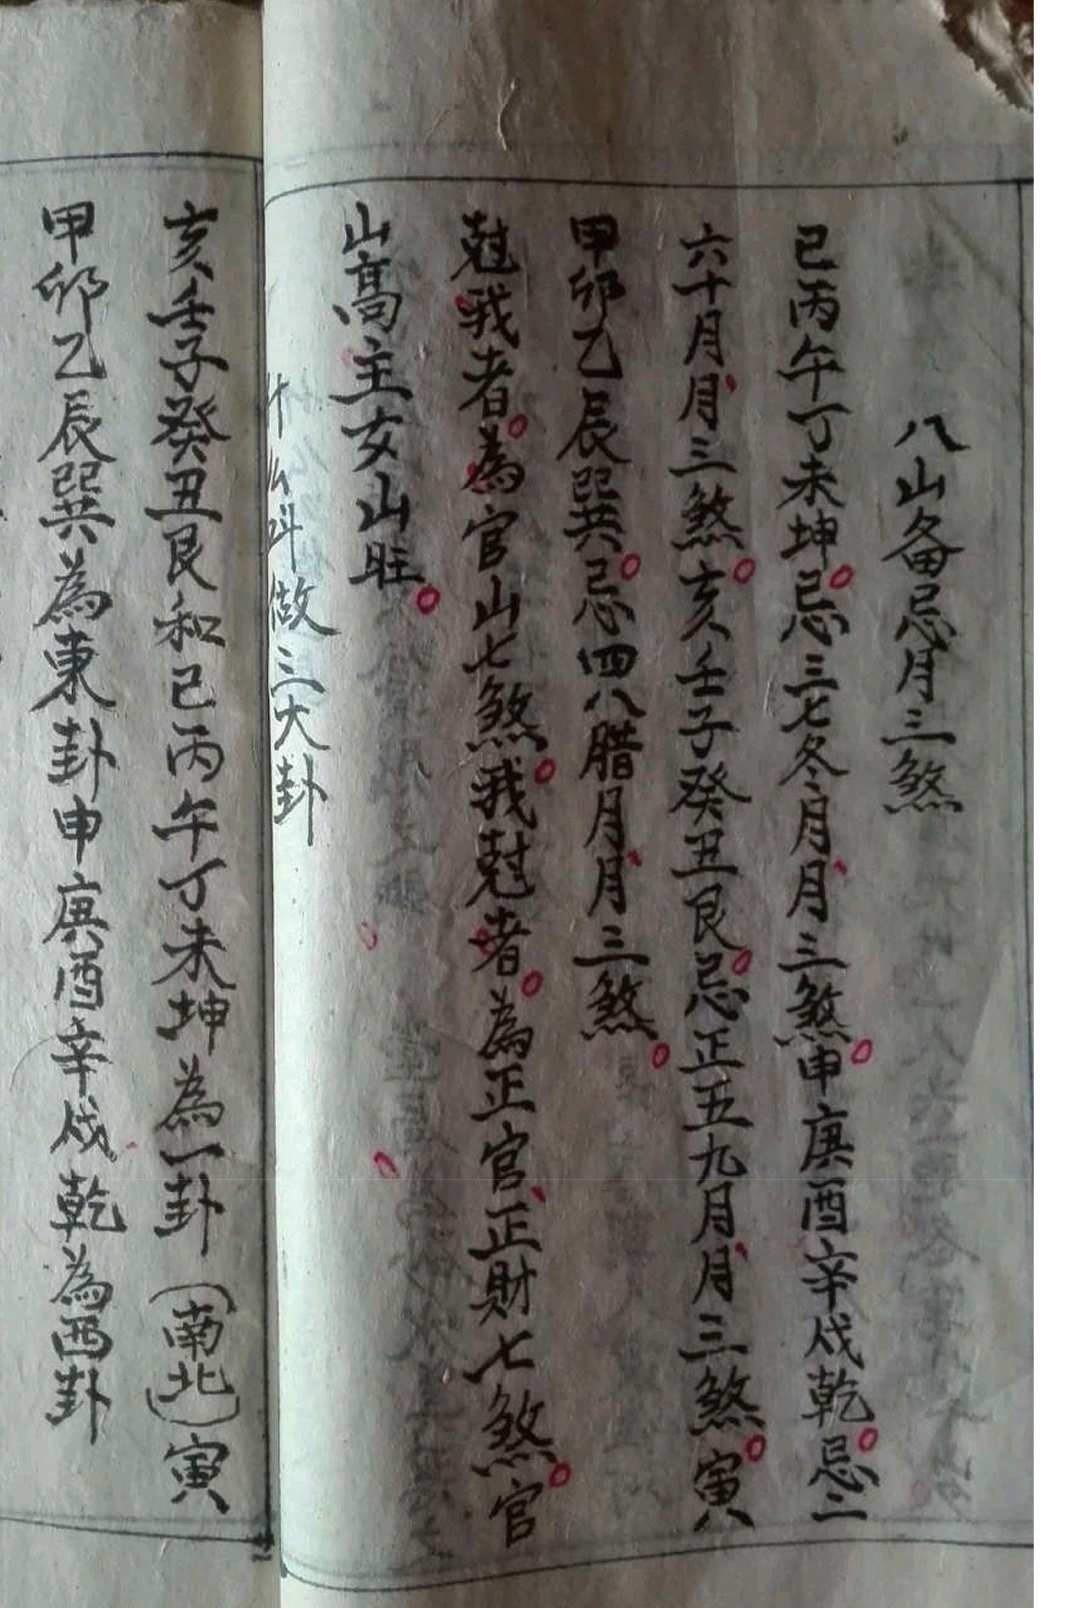 八山备忌月三煞
巳丙午丁未坤忌三七冬月月三煞申庚酉辛戍乾忌二
六十月月三煞亥壬子癸丑艮忌正五九月月三煞寅
甲卯乙辰巽忌四八腊月月三煞
尅我者為官山七煞我尅者為正官正財七煞官
山高主女山旺
什么叫做三大卦
亥壬子癸丑艮和巳丙午丁未坤為一卦(南北)寅
甲卯乙辰巽為東卦申庚酉辛戍乾為西卦